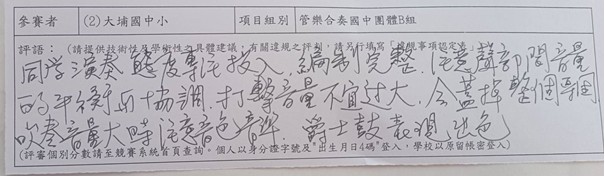 參賽者 (2)大埔國中小 項目組別 管樂合奏國中團體B組
評語：(請提供技術性及學術性之具體建議，有關違規之評判，請另行填寫「提醒事項認定表」)
同学演奏態度專注投入．編制完整．注意声部間音量
的平衡與協調．打擊音量不宜过大．会蓋掉整個樂團
吹奏音量大時注意音色音準．爵士鼓表現出色
(評審個別分數請至競賽系統首頁查詢。個人以身分證字號及"出生月日4碼"登入，學校以原留帳密登入)